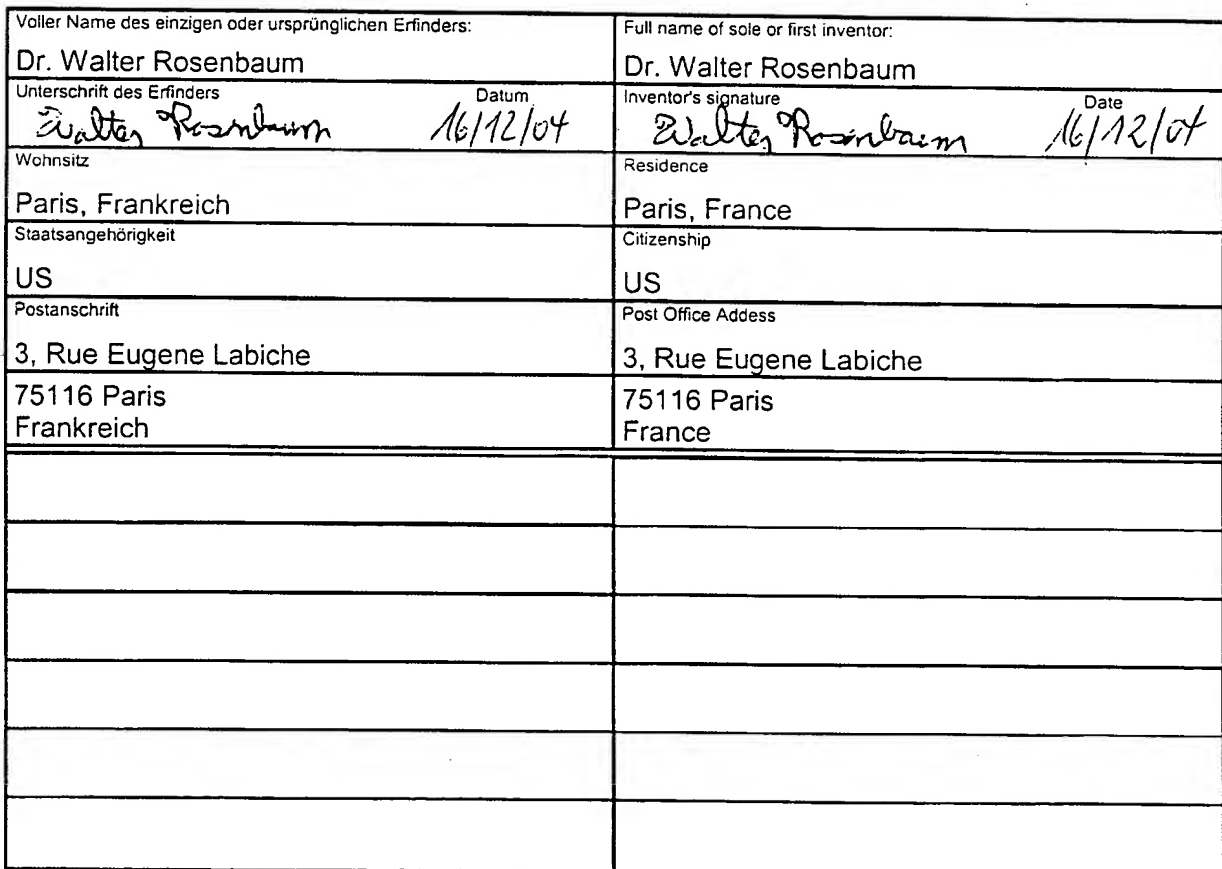 Voller Name des einzigen oder ursprünglichen Erfinders:
Dr. Walter Rosenbaum
Unterschrift des Erfinders Datum
Walter Rosenbaum 16/12/04
Wohnsitz
Paris, Frankreich
Staatsangehörigkeit
US
Postanschrift
3, Rue Eugene Labiche
75116 Paris
Frankreich
Full name of sole or first inventor:
Dr. Walter Rosenbaum
Inventor's signature Date
Walter Rosenbaum 16/12/04
Residence
Paris, France
Citizenship
US
Post Office Addess
3, Rue Eugene Labiche
75116 Paris
France